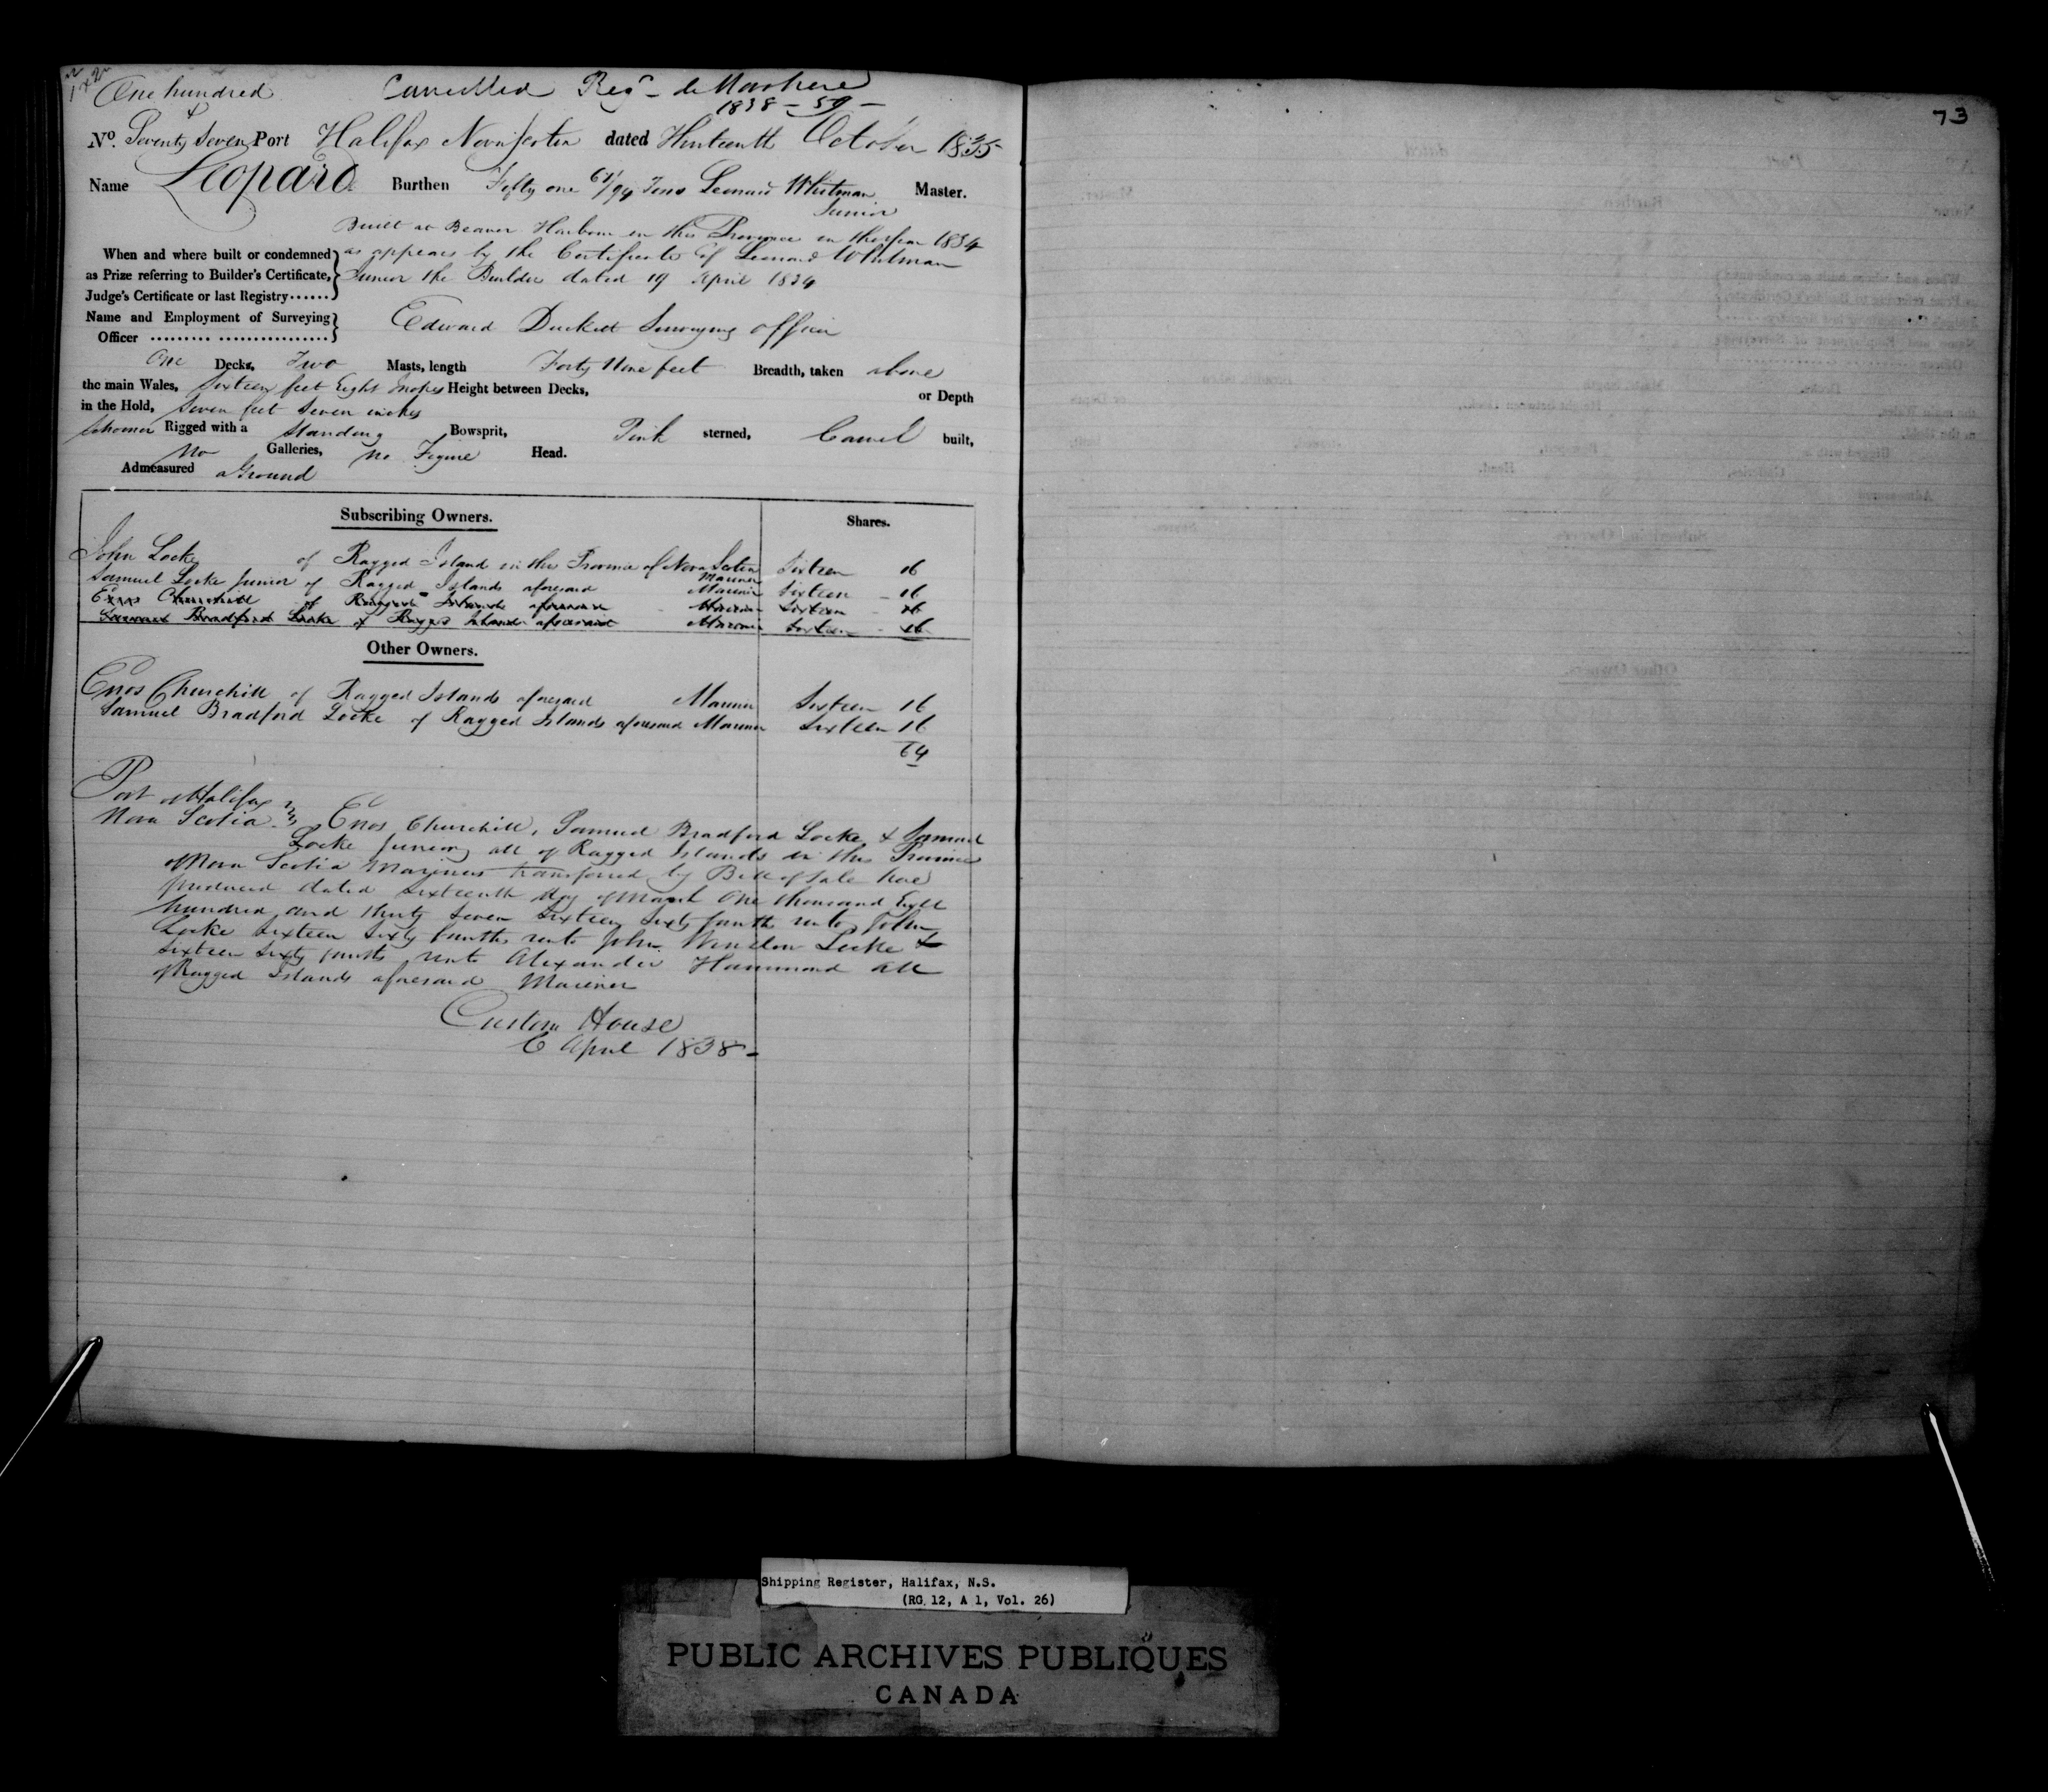 One hundred
&
Cancelled Reg^d de
1838 - 59 -
73
No. Seventy Seven Port Halifax Nova Scotia dated Thirteenth October 1835
Name Leopard Burthen Fifty one 61/94 Tons Leonard Whitman Master.
Junior
Built at Beaver Harbour in this Province in the year 1834
When and where built or condemned as appears by the Certificate of Leonard Whitman
as Prize referring to Builder's Certificate, Junior the Builder dated 19 April 1834
Judge's Certificate or last Registry......
Name and Employment of Surveying Edward Duckett Surveying officer
Officer ......... ................
One Decks, Two Masts, length Forty Nine feet Breadth, taken above
the main Wales, Sixteen feet Eight Inches Height between Decks, or Depth
in the Hold, Seven feet Seven inches
Schooner Rigged with a Standing Bowsprit, Pink sterned, Carvel built,
No Galleries, No Figure Head.
Admeasured aGround
Subscribing Owners. Shares.
John Locke of Ragged Island in the Province of Nova Scotia Sixteen 16
Mariner
Samuel Locke Junior of Ragged Islands aforesaid Mariner Sixteen - 16
Enos Churchill of Ragged Islands aforesaid Mariner Sixteen - 16
Samuel Bradford Locke of Ragged Islands aforesaid Mariner Sixteen - 16
Other Owners.
Enos Churchill of Ragged Islands aforesaid Mariner Sixteen 16
Samuel Bradford Locke of Ragged Islands aforesaid Mariner Sixteen 16
64
Port of Halifax
Nova Scotia Enos Churchill, Samuel Bradford Locke & Samuel
Locke Junior all of Ragged Islands in the Province
of Nova Scotia Mariners transferred by Bill of Sale here
produced dated Sixteenth day of March One thousand Eight
hundred and thirty Seven Sixteen Sixty fourths unto John
Locke Sixteen Sixty fourths unto John Winslow Locke &
Sixteen Sixty fourths unto Alexander Hammond all
of Ragged Islands aforesaid Mariner
Custom House
6 April 1838 -
Shipping Register, Halifax, N.S.
(RG 12, A 1, Vol. 26)
PUBLIC ARCHIVES PUBLIQUES
CANADA